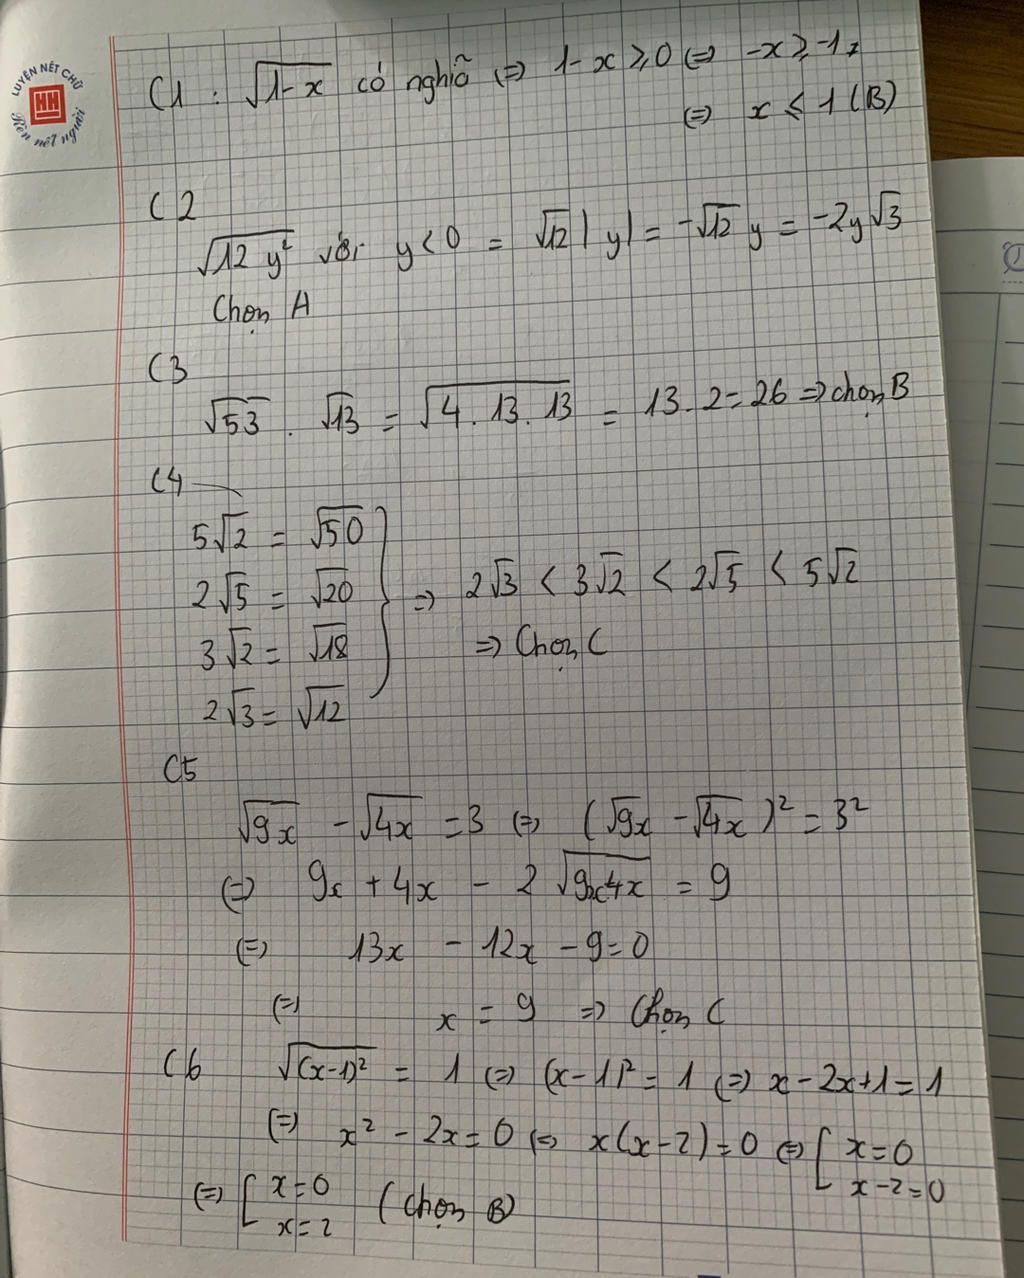 LUYỆN NÉT CHỮ
HH
Rèn nết người
C1 : √(1-x) có nghĩã ⇔ 1-x ≥ 0 ⇔ -x ≥ -1
⇔ x ≤ 1 (B)
C2
√(12 y²) với y < 0 = √12 |y| = -√12 y = -2y√3
Chọn A
C3
√53 . √13 = √(4. 13. 13) = 13. 2 = 26 ⇒ chọn B
C4
5√2 = √50
2√5 = √20
3√2 = √18
2√3 = √12
⇒ 2√3 < 3√2 < 2√5 < 5√2
⇒ Chọn C
C5
√9x - √4x = 3 ⇔ (√9x - √4x)² = 3²
⇔ 9x + 4x - 2 √(9x4x) = 9
⇔ 13x - 12x - 9 = 0
⇔ x = 9 ⇒ Chọn C
C6 √((x-1)²) = 1 ⇔ (x-1)² = 1 ⇔ x - 2x + 1 = 1
⇔ x² - 2x = 0 ⇔ x(x-2) = 0 ⇔ [ x = 0
x - 2 = 0
⇔ [ x = 0 (Chọn B)
x = 2